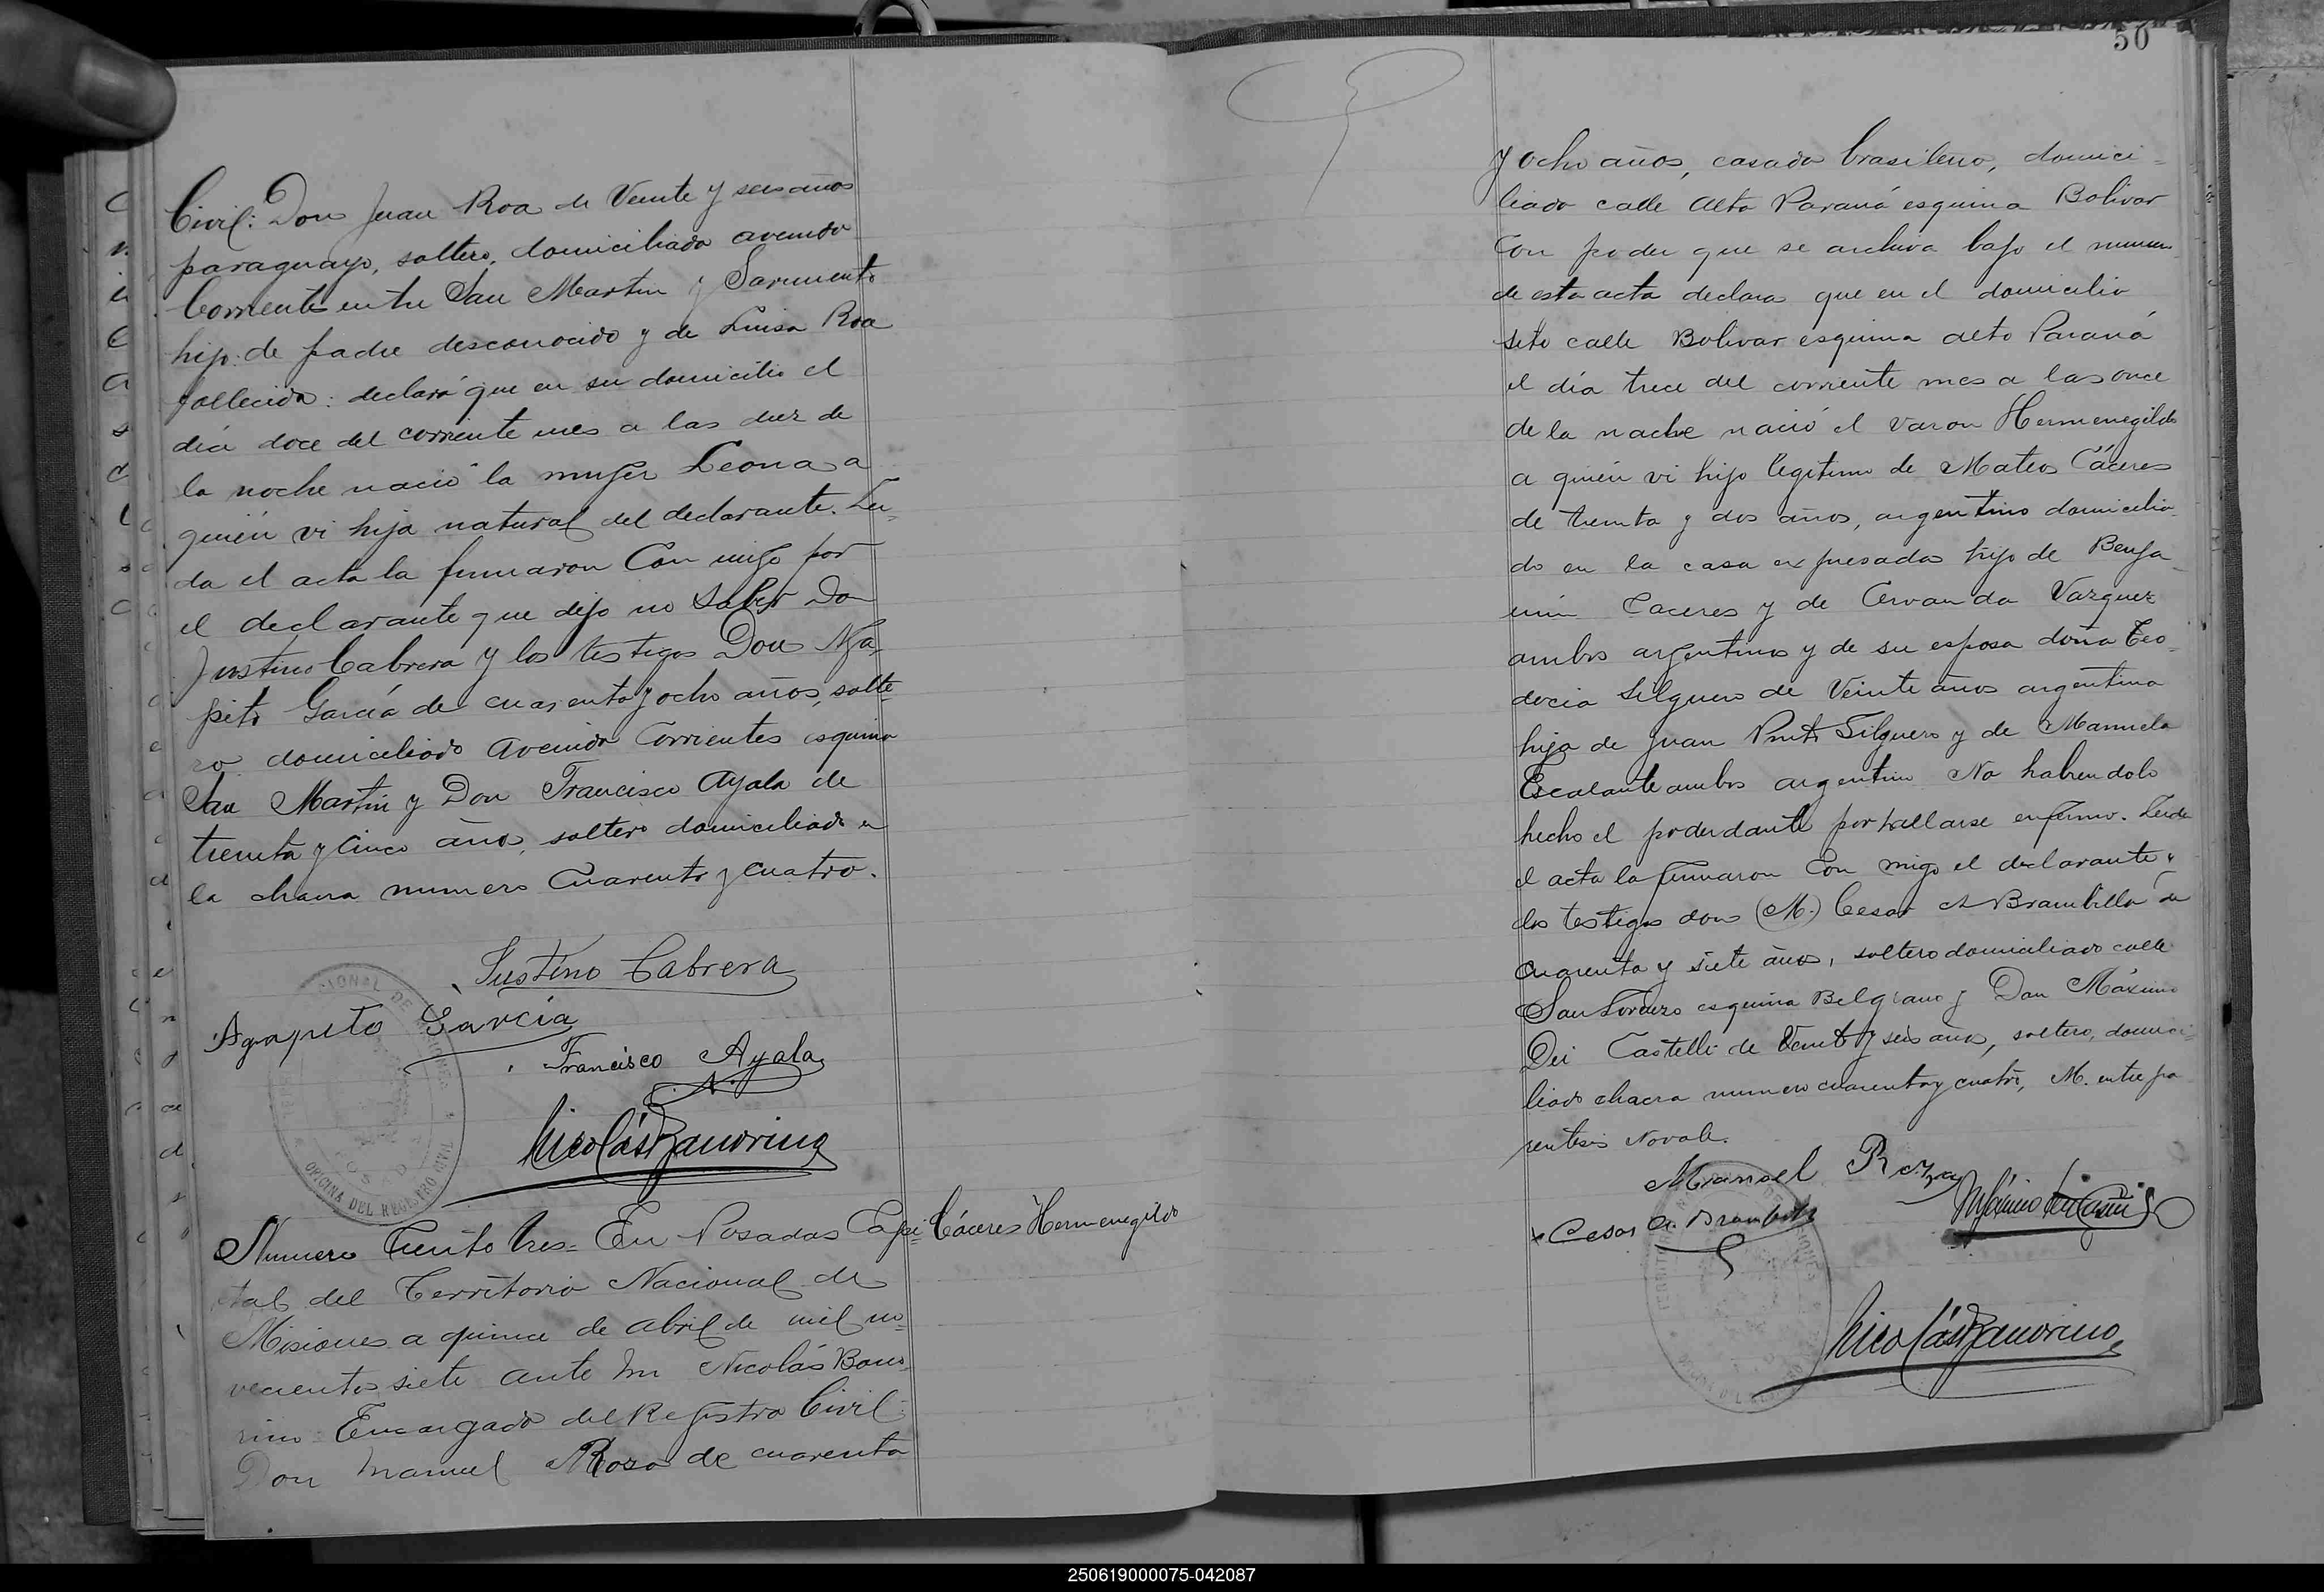 Civil: Don Juan Roa de Veinte y seis años
paraguayo, soltero, domiciliado avenida
Corrientes entre San Martin y Sarmiento
hijo de padre desconocido y de Luisa Roa
fallecida: declaró que en su domicilio el
día doce del corriente mes a las diez de
la noche nació la mujer Leona a
quién vi hija natural del declarante. Lei-
da el acta la firmaron Con migo por
el declarante que dijo no saber Don
Justino Cabrera y los testigos Don Aga-
pito García de cuarenta y ocho años, solte-
ro domiciliado avenida Corrientes esquina
San Martín y Don Francisco Ayala de
treinta y cinco año, soltero domiciliado en
la chacra numero Cuarenta y cuatro.
Justino Cabrera
Agapito García
Francisco Ayala
OFICINA DEL REGISTRO CIVIL
Numero Ciento tres= En Posadas Capi-
Cáceres Hermenegildo
tal del Territorio Nacional de
Misiones a quince de abril de mil no=
vecientos siete ante mi Nicolás Bono-
rino Encargado del Registro Civil:
Don Manuel Roza de cuarenta
50
y ocho años, casado brasilero, domici-
liado calle Alto Paraná esquina Bolivar
Con poder que se archiva bajo el numero
de esta acta declara que en el domicilio
sito calle Bolivar esquina alto Paraná
el día trece del corriente mes a las once
de la noche nació el varon Hermenegildo
a quién vi hijo legitimo de Mateo Cáceres
de treinta y dos años, argentino domicilia-
do en la casa expresada hijo de Benja-
min Caceres y de Vazquez
ambos argentinos y de su esposa doña Teo-
docia Silguero de Veinte años argentina
hija de Juan Silguero y de Manuela
Escalante ambos argentin No habiendolo
hecho el poderdante por hallarse enfermo. Leida
el acta la firmaron Con migo el declarante y
los testigos don (M.) Cesar A Brambilla de
cuarenta y siete años, soltero domiciliado calle
San Lorenzo esquina Belgrano y Don Máximo
Dei Castelli de Veinte y seis años, soltero, domici-
liado chacra numero cuarenta y cuatro, M. entre pa
rentesis Novale.
Manoel Roza
Cesar A. Brambilla
250619000075-042087